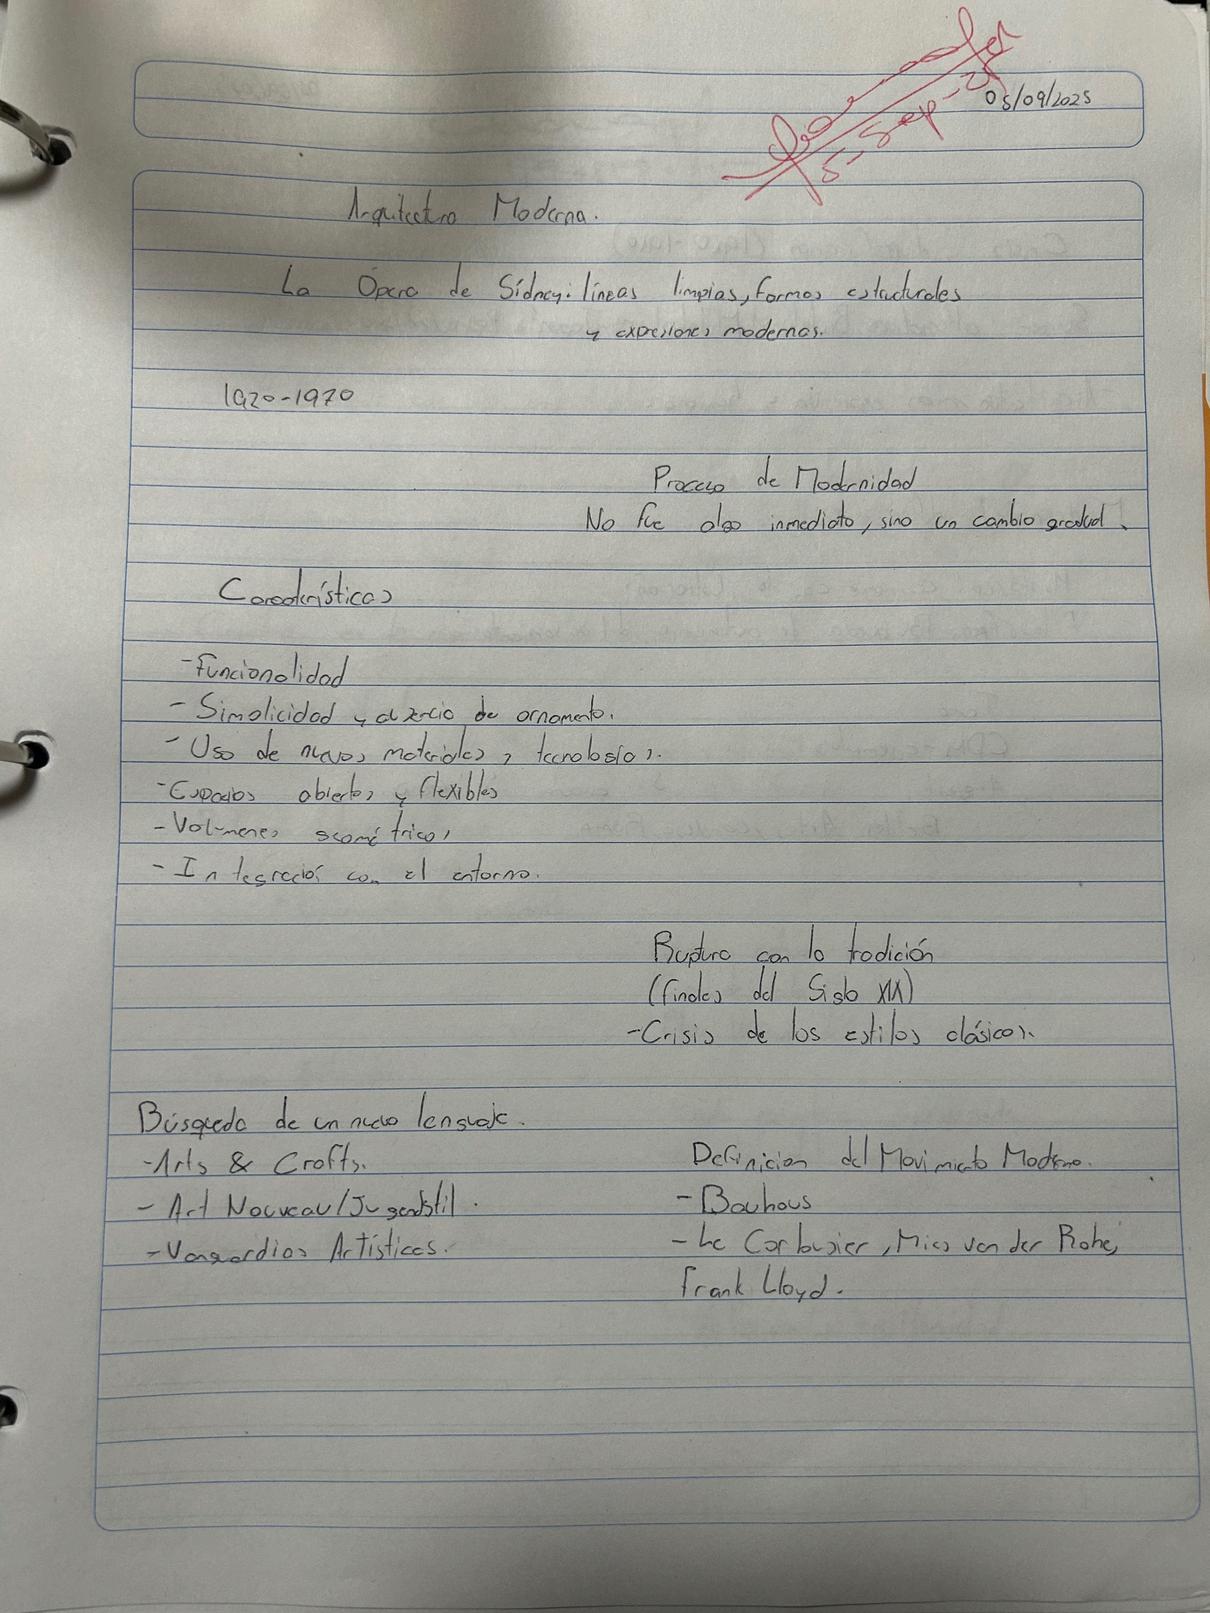 05/09/2025
5-Sep-25
Arquitectura Moderna.
La Ópera de Sídney: líneas limpias, formas estructurales
y expresiones modernas.
1920-1970
Proceso de Modernidad
No fue algo inmediato, sino un cambio gradual.
Características
-Funcionalidad
- Simplicidad y ausencia de ornamento.
- Uso de nuevos materiales y tecnologías.
-Espacios abiertos y flexibles
-Volúmenes geométricos
- Integración con el entorno.
Ruptura con la tradición
(finales del Siglo XIX)
-Crisis de los estilos clásicos.
Búsqueda de un nuevo lenguaje.
-Arts & Crafts.
- Art Nouveau/Jugendstil.
-Vanguardias Artísticas.
Definicion del Movimiento Moderno.
- Bauhaus
- Le Corbusier, Mies van der Rohe,
Frank Lloyd.